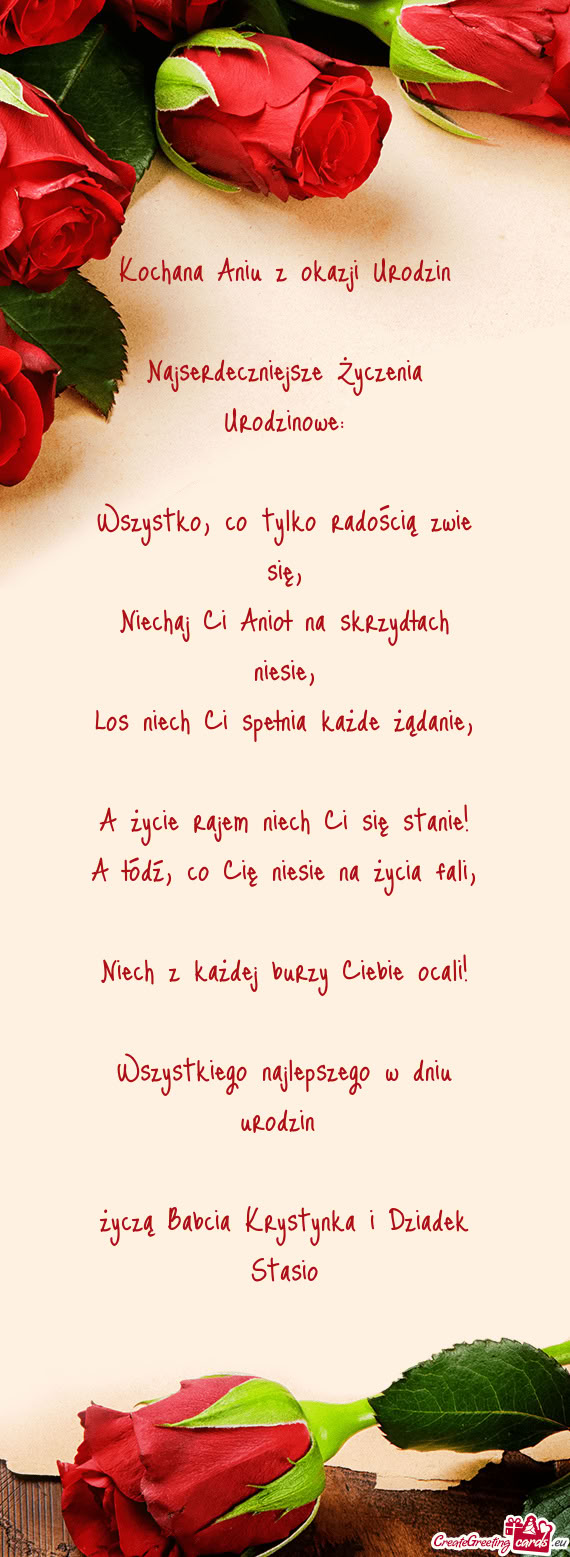 Kochana Aniu z okazji Urodzin
Najserdeczniejsze Życzenia
Urodzinowe:
Wszystko, co tylko radością zwie
się,
Niechaj Ci Anioł na skrzydłach
niesie,
Los niech Ci spełnia każde żądanie,
A życie rajem niech Ci się stanie!
A łódź, co Cię niesie na życia fali,
Niech z każdej burzy Ciebie ocali!
Wszystkiego najlepszego w dniu
urodzin
życzą Babcia Krystynka i Dziadek
Stasio
CreateGreetingcards.eu